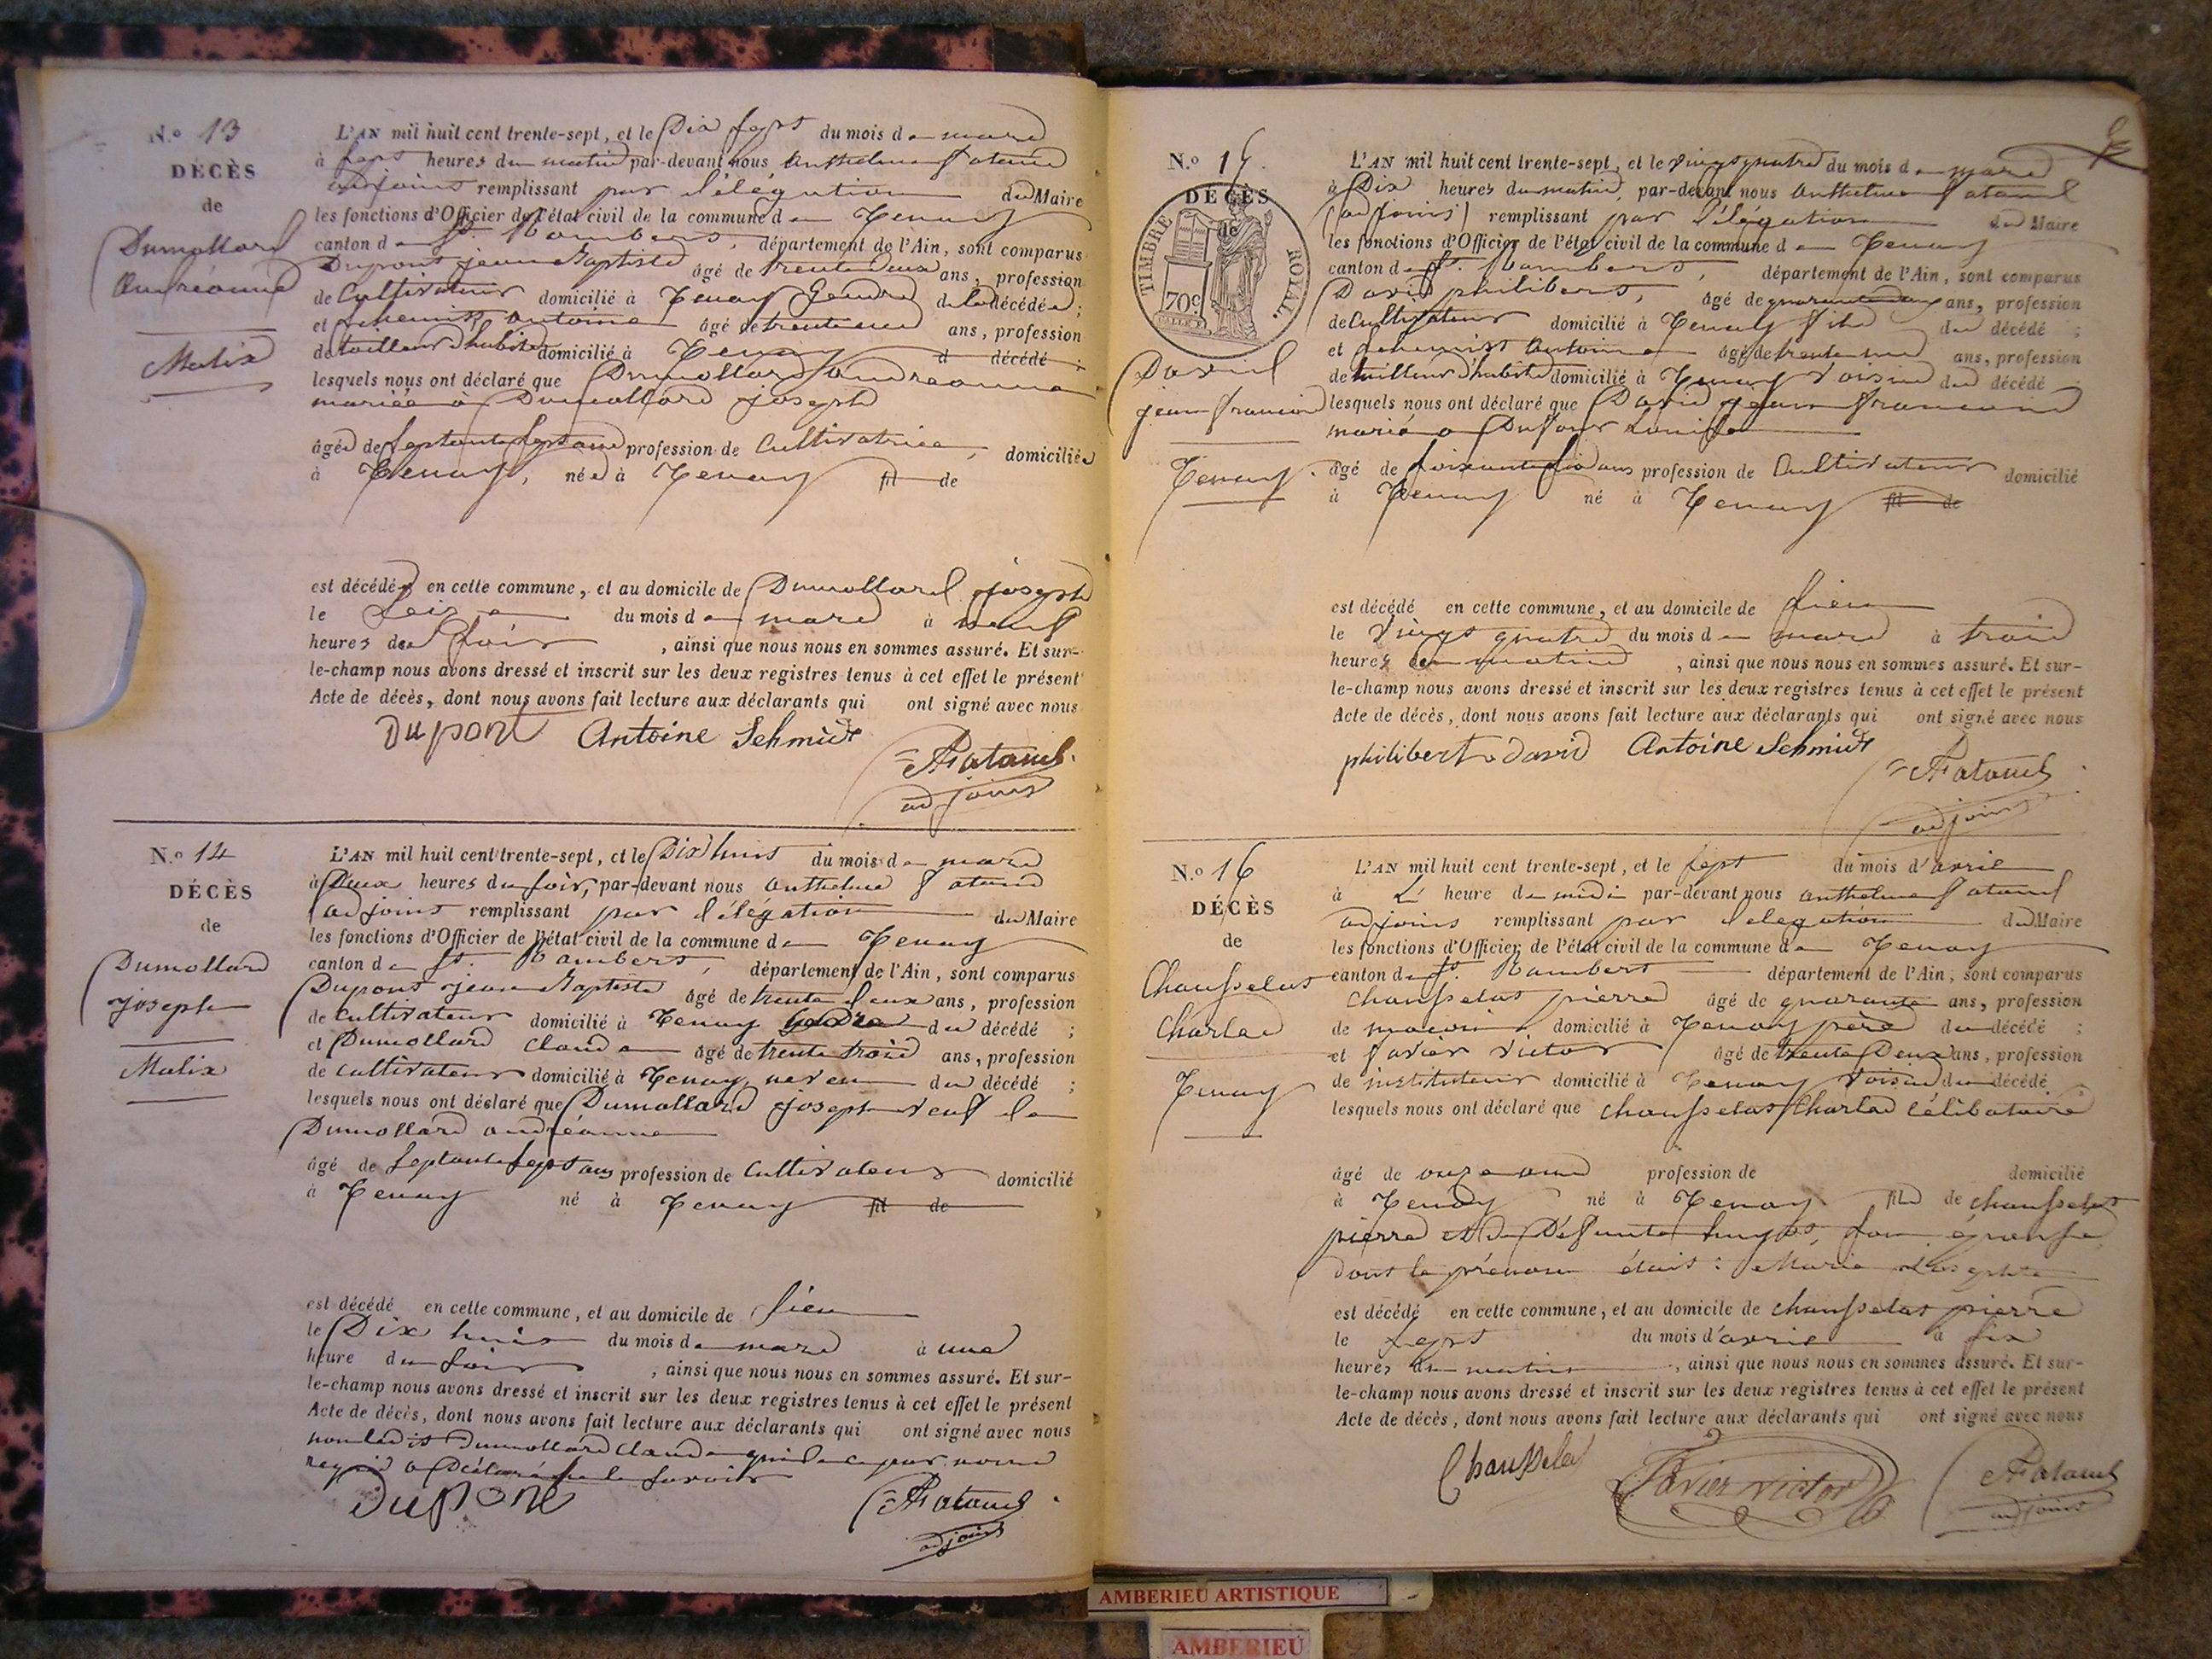 N.º 13
DÉCÈS
de
Dumollard
Andréanne
Malix
L'AN mil huit cent trente-sept, et le Dix sept du mois de mars
à sept heures du matin par-devant nous Anthelme Fatame
adjoint remplissant par délégation du Maire
les fonctions d'Officier de l'état civil de la commune de Tenay
canton de St. Rambert, département de l'Ain, sont comparus
Dupont jean Baptiste âgé de trente deux ans, profession
de Cultivateur domicilié à Tenay Gendre de la décédée ;
et schemidt antoine âgé de trente ans, profession
de tailleur d'habits domicilié à Tenay d décédé ;
lesquels nous ont déclaré que Dumollard andreanne
mariée à Dumollard joseph
âgée de septante sept ans profession de Cultivatrice, domiciliée
à Tenay, née à Tenay fil de
est décédée en cette commune, et au domicile de Dumollard joseph
le seize du mois de mars à neuf
heures du soir, ainsi que nous nous en sommes assuré. Et sur-
le-champ nous avons dressé et inscrit sur les deux registres tenus à cet effet le présent
Acte de décès, dont nous avons fait lecture aux déclarants qui ont signé avec nous
Dupont Antoine Schmidt
adjoint
N.º 14
DÉCÈS
de
Dumollard
joseph
Malix
L'AN mil huit cent trente-sept, et le Dix huit du mois de mars
à Deux heures du soir, par-devant nous anthelme Fatame
adjoint remplissant par délégation du Maire
les fonctions d'Officier de l'état civil de la commune de Tenay
canton de St. Rambert, département de l'Ain, sont comparus
Dupont jean Baptiste âgé de trente deux ans, profession
de cultivateur domicilié à Tenay Gendre du décédé ;
et Dumollard claude âgé de trente trois ans, profession
de cultivateur domicilié à Tenay neveu du décédé ;
lesquels nous ont déclaré que Dumollard joseph veuf de
Dumollard andréanne
âgé de septante sept ans profession de Cultivateur domicilié
à Tenay né à Tenay fil de
est décédé en cette commune, et au domicile de sien
le Dix huit du mois de mars à une
heure du soir, ainsi que nous nous en sommes assuré. Et sur-
le-champ nous avons dressé et inscrit sur les deux registres tenus à cet effet le présent
Acte de décès, dont nous avons fait lecture aux déclarants qui ont signé avec nous
non ledit Dumollard claude qui de ce par nous
requis a Déclaré ne le savoir
Dupont
adjoint
N.º 15
DÉCÈS
de
TIMBRE ROYAL.
70c
David
jean francois
Tenay
L'AN mil huit cent trente-sept, et le vingt quatre du mois de mars
à Dix heures du matin, par-devant nous anthelme Fatame
(adjoint) remplissant par délégation du Maire
les fonctions d'Officier de l'état civil de la commune de Tenay
canton de St. Rambert, département de l'Ain, sont comparus
David philibert, âgé de quarante ans, profession
de Cultivateur domicilié à Tenay fils du décédé ;
et schemidt Antoine âgé de trente ans, profession
de tailleur d'habits domicilié à Tenay Voisin du décédé
lesquels nous ont déclaré que David jean francois
marié à Dufour Louise
âgé de soixante six ans profession de Cultivateur domicilié
à Tenay né à Tenay fil de
est décédé en cette commune, et au domicile de sien
le vingt quatre du mois de mars à trois
heures du matin, ainsi que nous nous en sommes assuré. Et sur-
le-champ nous avons dressé et inscrit sur les deux registres tenus à cet effet le présent
Acte de décès, dont nous avons fait lecture aux déclarants qui ont signé avec nous
philibert david Antoine Schmidt
adjoint
N.º 16
DÉCÈS
de
Chausselat
Charles
Tenay
L'AN mil huit cent trente-sept, et le sept du mois d'avril
à L' heure de midi par-devant nous anthelme Fatame
adjoint remplissant par delegation du Maire
les fonctions d'Officier de l'état civil de la commune de Tenay
canton de St. Rambert département de l'Ain, sont comparus
chausselat pierre âgé de quarante ans, profession
de macon domicilié à Tenay père du décédé ;
et Favier victor âgé de trente Deux ans, profession
de instituteur domicilié à Tenay Voisin du décédé
lesquels nous ont déclaré que chausselat Charles célibataire
âgé de onze ans profession de domicilié
à Tenay né à Tenay fils de chausselat
pierre et de Défunte son épouse
dont le prénom était : Marie
est décédé en cette commune, et au domicile de chausselat pierre
le sept du mois d'avril à six
heures du matin, ainsi que nous nous en sommes assuré. Et sur-
le-champ nous avons dressé et inscrit sur les deux registres tenus à cet effet le présent
Acte de décès, dont nous avons fait lecture aux déclarants qui ont signé avec nous
Chausselat Favier victor
adjoint
AMBERIEU ARTISTIQUE
AMBERIEU